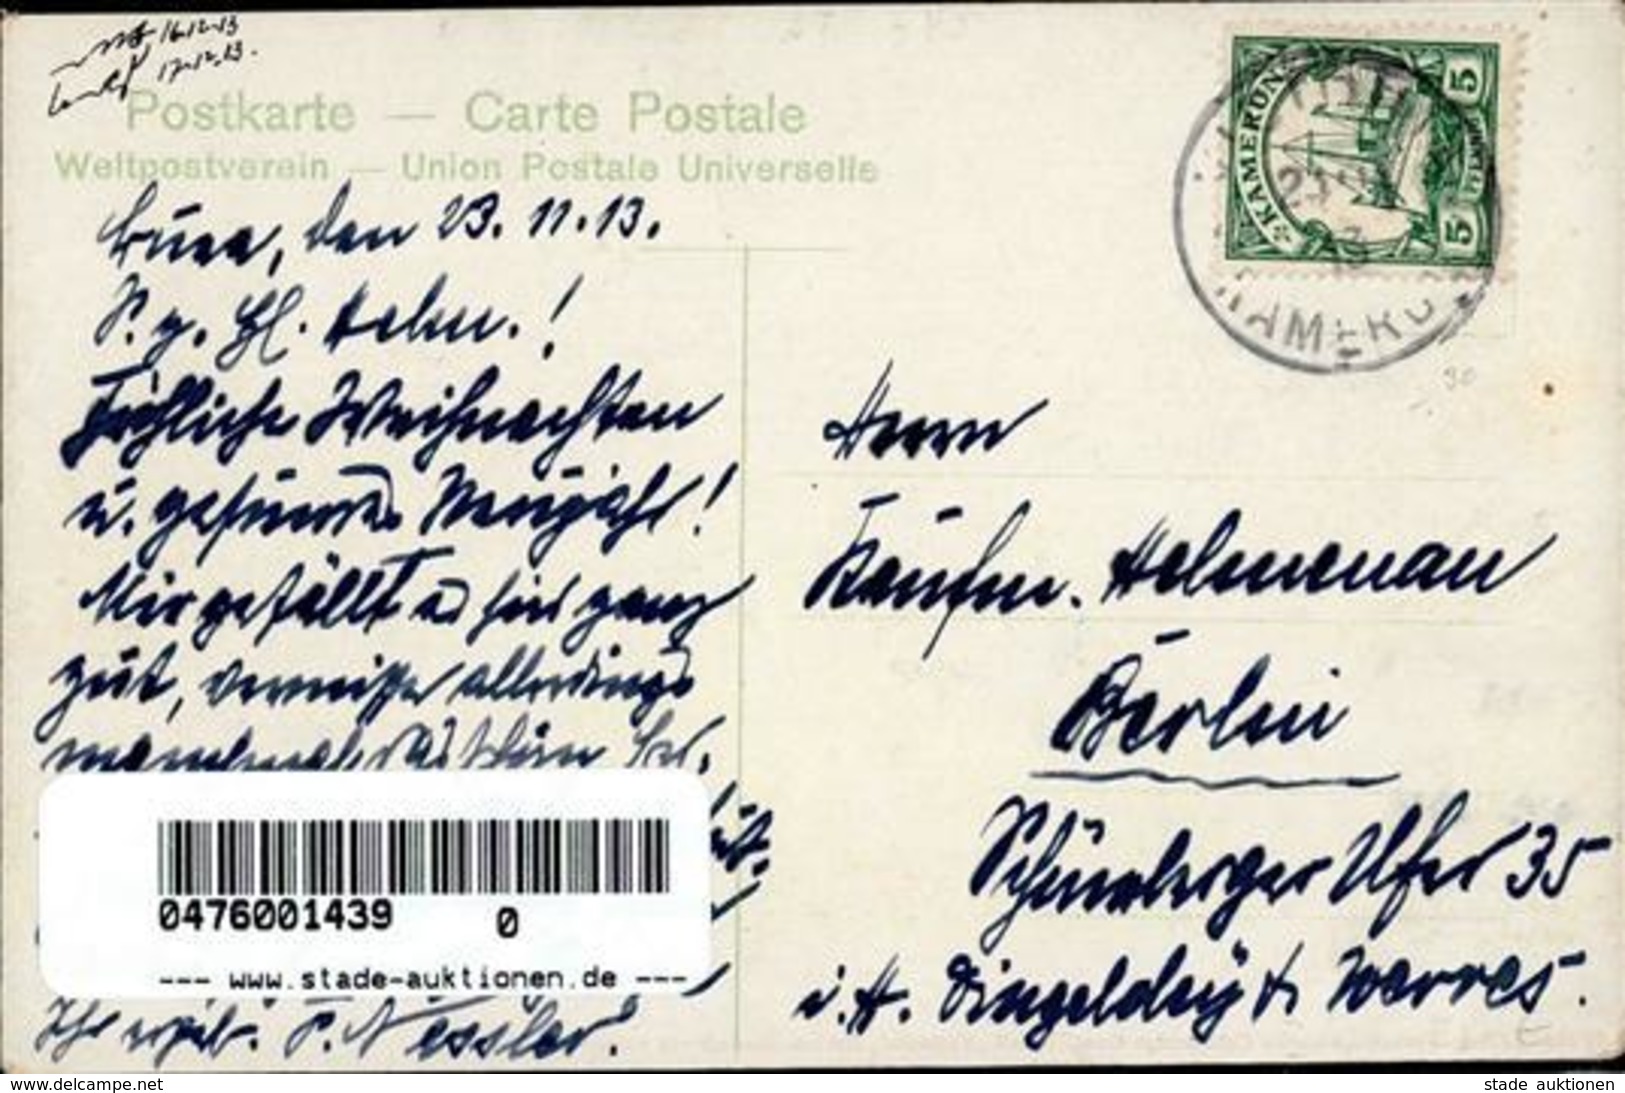 16.12.13
17.12.13.
Postkarte — Carte Postale
Weltpostverein — Union Postale Universelle
KAMERUN
5
5
KAMERU
Buea, den 23.11.13.
S. g. H. Helm.!
Fröhliche Weihnachten
u. gesundes Neujahr!
Mir gefällt es hier ganz
gut, vermisse allerdings
manchmal
Ihr ergeb. P. Nessler.
Herrn
Kaufm. Helmenau
Berlin
Schöneberger Ufer 35
i. H. Dingeldey & Werres.
0476001439
0
--- www.stade-auktionen.de ---
www.delcampe.net
stade auktionen